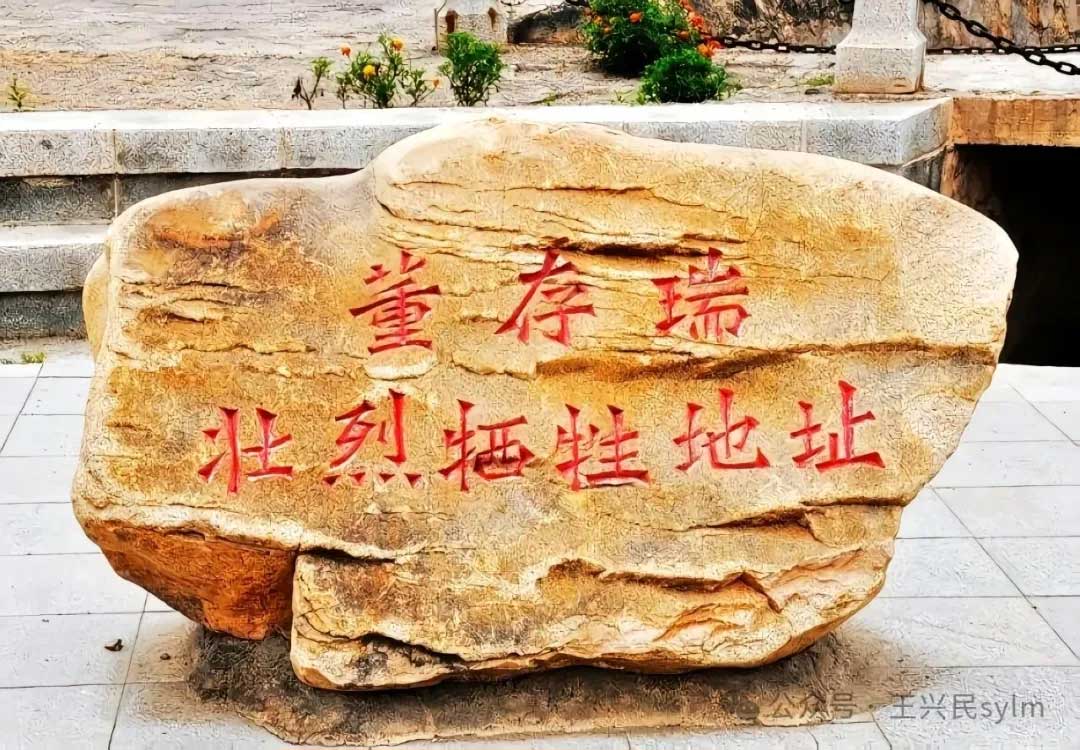 董存瑞
壮烈牺牲地址
公众号 · 王兴民sylm